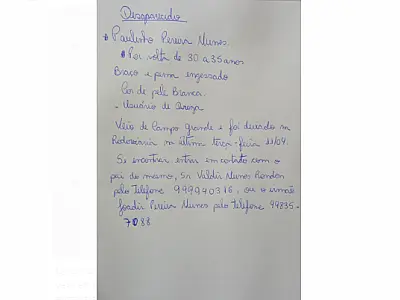 Desaparecido
* Paulinho Pereira Nunes.
* Por volta de 30 a 35 anos
Braço e perna engessado
Cor de pele Branca.
- Usuário de Droga
Veio de Campo grande e foi deixado na
Rodoviária na última terça-feira 11/04.
Se encontrar entrar em contato com o
pai do mesmo, Sr Valdir Nunes Rondon
pelo Telefone 999940316, ou o irmão
Joadir Pereira Nunes pelo telefone 99835-
7088